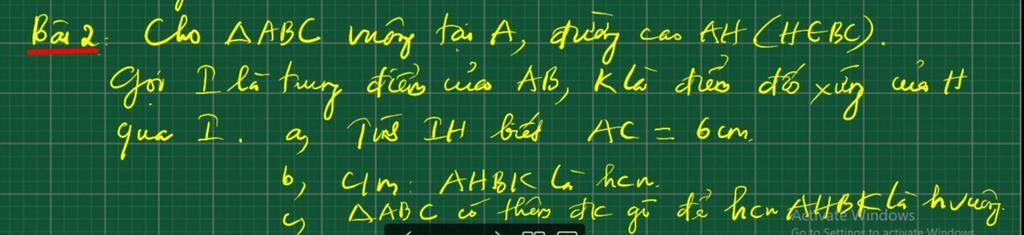 Bài 2: Cho △ABC vuông tại A, đường cao AH (H∈BC).
Gọi I là trung điểm của AB, K là điểm đối xứng của H
qua I. a, Tính IH biết AC = 6cm.
b, C/m: AHBK là hcn.
c, △ABC có thêm đk gì để hcn AHBK là hvuông.
Activate Windows
Go to Settings to activate Windows.